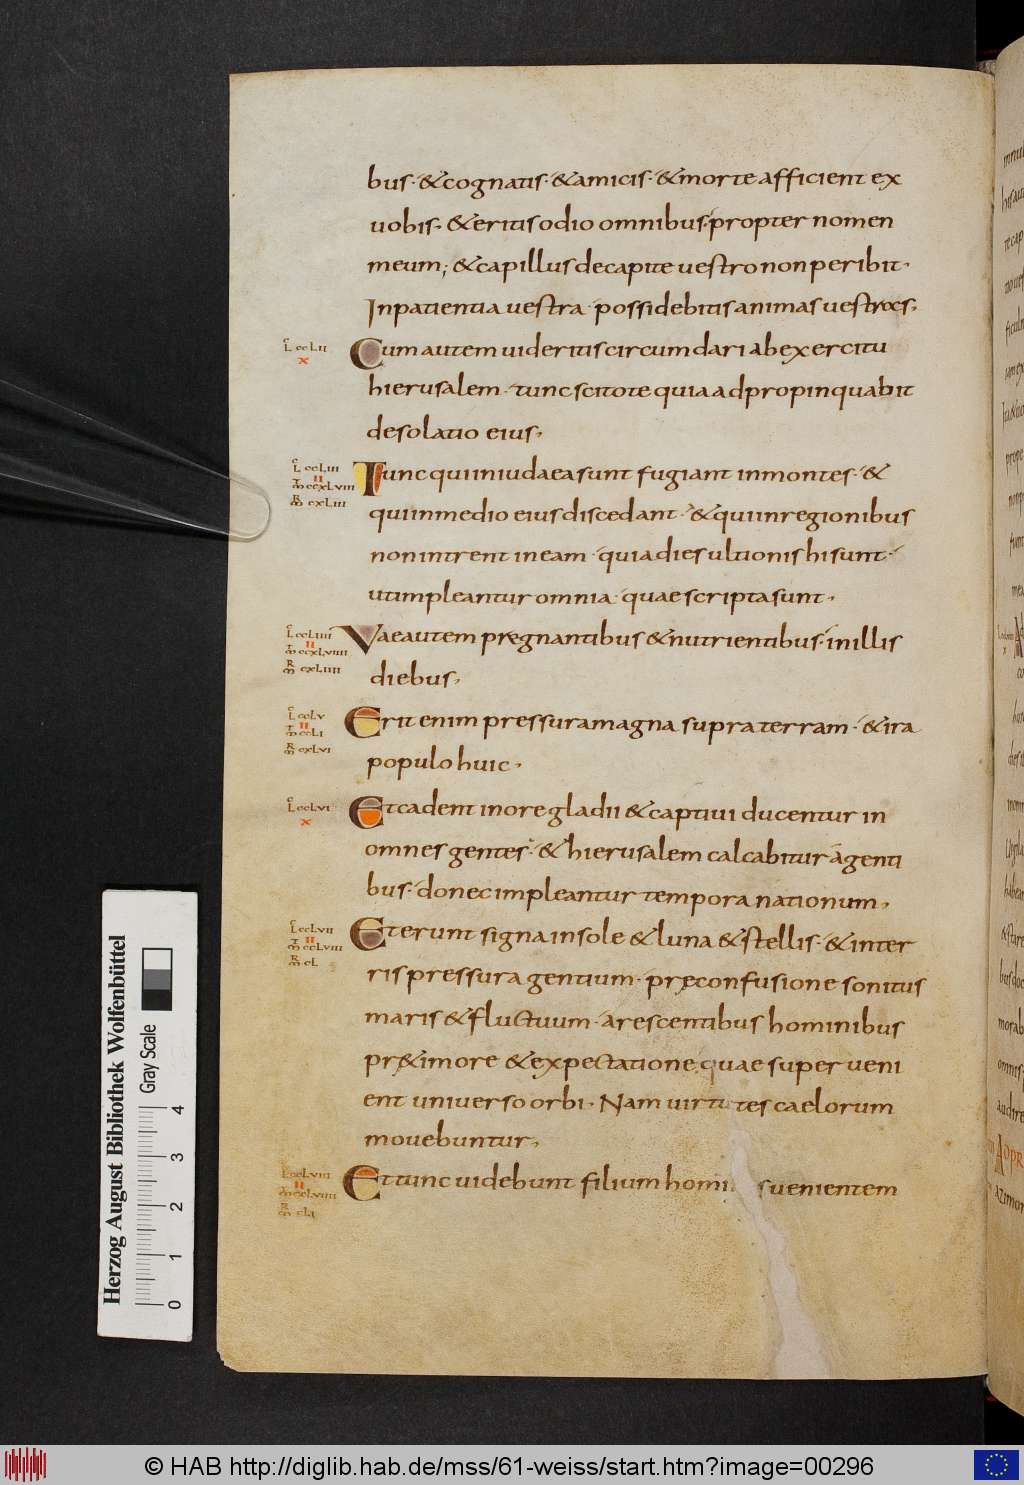 bus· &cognatis· &amicis· &morte afficient ex
uobis· &eritis odio omnibus· propter nomen
meum; &capillus decapite uestro non peribit·
Inpatientia uestra· possidebitis animas uestras,
L ccLII
X
Cum autem uideritis circumdari abexercitu
hierusalem· tunc scitote quia adpropinquabit
desolatio eius,
L ccLIII
II
ccxLVIII
cxLIII
Tunc qui iniudaea sunt fugiant inmontes· &
qui inmedio eius discedant· &qui inregionibus
non intrent ineam· quia dies ultionis hi sunt·
ut impleantur omnia· quae scripta sunt,
L ccLIIII
II
ccxLVIIII
cxLIIII
Vae autem pregnantibus &nutrientibus· inillis
diebus,
L ccLV
II
ccLI
cxLVI
Erit enim pressura magna supra terram· &ira
populo huic,
L ccLVI
X
Et cadent inore gladii &captiui ducentur in
omnes gentes· &hierusalem calcabitur a genti
bus· donec impleantur tempora nationum,
L ccLVII
II
ccLVIII
cL
Et erunt signa insole &luna &stellis· &inter
ris pressura gentium· pręconfusione sonitus
maris &fluctuum· arescentibus hominibus
pr&imore &expectatione quae superueni
ent uniuerso orbi· Nam uirtutes caelorum
mouebuntur,
L ccLVIII
II
ccLVIIII
cLI
Et tunc uidebunt filium homi suenientem
Herzog August Bibliothek Wolfenbüttel
Gray Scale
0 1 2 3 4
© HAB http://diglib.hab.de/mss/61-weiss/start.htm?image=00296